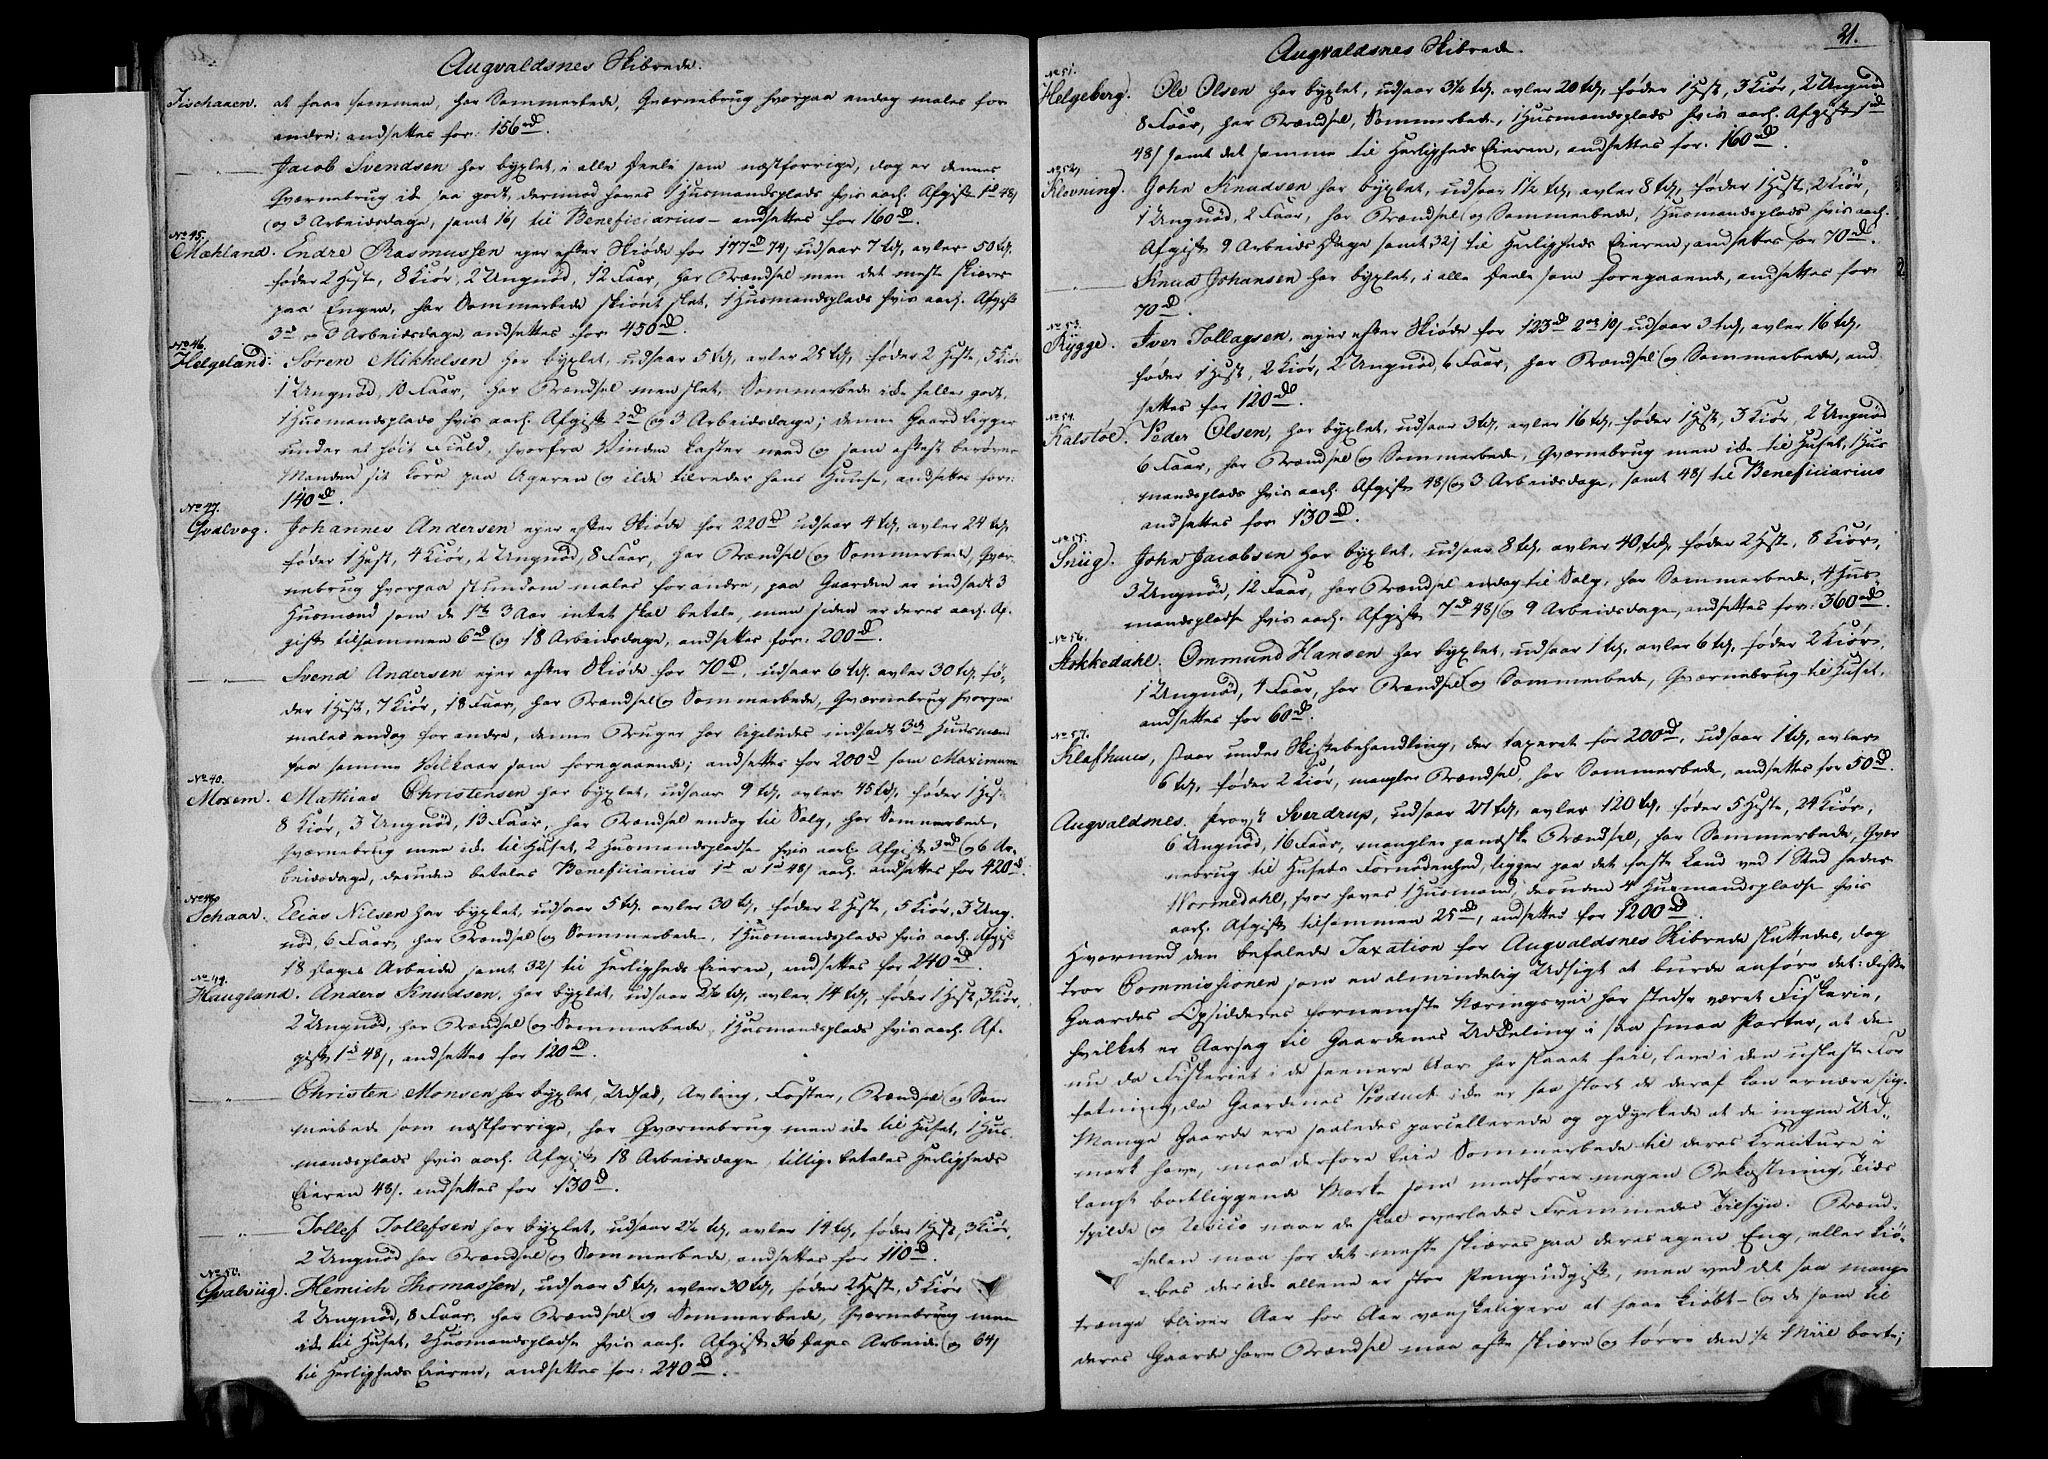 Augvaldsnes Skibrede.
Fischaaen. at faae sammen, har Sommerbede, Qværnebrug hvorpaa endog males for
andre; ansettes for: 156 rd.
—„— Jacob Svendsen har byxlet, i alle Deele som næstforrige, dog er dennes
Qværnebrug ik saa godt, derimod haves 1 Huusmandsplads hvis aarl. Afgift 1 rd 48 s
og 3 Arbeidsdage, samt 16 s til Beneficiarius – ansettes for 160 rd.
No 45.
Mæhland. Endre Rasmussen eyer efter Skiøde for 177 rd 74 s, udsaar 7 td, avler 50 td,
føder 2 Heste, 8 Kiør, 2 Ungnød, 12 Faar, har Brændsel men det meste skiæres
paa Engen, har Sommerbede skiønt slet, 1 Huusmandsplads hvis aarl. Afgift
3 rd og 3 Arbeidsdage, ansettes for 450 rd.
No 46.
Helgeland: Søren Mikkelsen har byxlet, udsaar 5 td, avler 25 td, føder 2 Heste, 5 Kiør
1 Ungnød, 10 Faar, har Brændsel men slet, Sommerbede ikke heller godt,
1 Huusmandsplads hvis aarl. Afgift 2 rd og 3 Arbeidsdage; denne Gaard ligger
under et høit Field, hvorfra Vinden kaster need og som oftest berøver
Manden sit Korn paa Ageren og ilde tilreder hans Huuse, ansettes for:
140 rd.
No 47.
Qvalvog. Johannes Andersen eyer efter Skiøde for 220 rd udsaar 4 td, avler 24 td,
føder 1 Hest, 4 Kiør, 2 Ungnød, 8 Faar, har Brændsel og Sommerbede, Qvær-
nebrug hvorpaa stundom males for andre, paa Gaarden er indsadt 3
Huusmænd som de 1ste 3 Aar intet skal betale, men siden er deres aarl. Af-
gift tilsammen 6 rd og 18 Arbeidsdage, ansettes for: 200 rd.
—„— Svend Andersen eyer efter Skiøde for 70 rd, udsaar 6 td, avler 30 td, fø-
der 1 Hest, 7 Kiør, 18 Faar, har Brændsel og Sommerbede, Qværnebrug hvorpaa
males endog for andre, denne Bruger har ligeledes indsadt 3de Huusmænd
paa samme Vilkaar som foregaaende; ansettes for 200 rd som Maximum
No 48.
Moxem. Mathias Christensen har byxlet, udsaar 9 td, avler 45 td, føder 1 Hest
8 Kiør, 3 Ungnød, 13 Faar, har Brændsel endog til Salg, har Sommerbede,
Qværnebrug men ik til Huset, 2 Huusmandspladse hvis aarl. Afgift 3 rd og 6 Ar-
beidsdage, desuden betales Beneficiarius 1 rd a 1 rd 48 s aarl. ansettes for 420 rd.
Schaar. Elias Nilsen har byxlet, udsaar 5 td, avler 30 td, føder 2 Heste, 5 Kiør, 3 Ung-
nød, 6 Faar, har Brændsel og Sommerbede, 1 Huusmandsplads hvis aarl. Afgift
18 Dages Arbeide samt 32 s til Herligheds Eieren, ansettes for 240 rd.
No 49.
Haugland. Anders Knudsen, har byxlet, udsaar 2½ td, avler 14 td, føder 1 Hest, 3 Kiør,
2 Ungnød, har Brændsel og Sommerbede, 1 Huusmandsplads hvis aarl. Af-
gift 1 rd 48 s, ansettes for 120 rd.
—„— Christen Monsen har byxlet, Udsæd, Avling, Foster, Brændsel og Som-
merbede som næstforrige, har Qværnebrug men ik til Huset, 1 Huus-
mandsplads hvis aarl. Afgift 18 Arbeidsdage, tillige betales Herligheds
Eieren 48 s. ansettes for 130 rd.
—„— Tollef Tollefsen har byxlet, udsaar 2½ td, avler 14 td, føder 1 Hest, 3 Kiør,
2 Ungnød har Brændsel og Sommerbede, ansettes for 110 rd.
No 50.
Qvalviig). Hemich Thomassen, udsaar 5 td, avler 30 td, føder 2 Heste, 5 Kiør
2 Ungnød, 8 Faar, har Brændsel og Sommerbede, Qværnebrug men
ik til Huset, 2 Huusmandspladse hvis aarl. Afgift 36 Dages Arbeide og 64 s
til Herligheds Eieren, ansettes for: 240 rd.
21.
Augvaldsnes Skibrede.
No 51.
Helgeberg). Ole Olsen har byxlet, udsaar 3½ td, avler 20 td, føder 1 Hest, 3 Kiør, 2 Ungnød
8 Faar, har Brændsel, Sommerbede, 1 Huusmandsplads hvis aarl. Afgift 1 rd
48 s samt det samme til Herligheds Eieren, ansettes for: 160 rd.
No 52.
Klovning). John Knudsen har byxlet, udsaar 1½ td, avler 8 td, føder 1 Hest, 2 Kiør,
1 Ungnød, 2 Faar, har Brændsel og Sommerbede, 1 Huusmandsplads hvis aarl.
Afgift 9 Arbeids Dage samt 32 s til Herligheds Eieren, ansettes for 70 rd.
—„— Knud Johansen har byxlet, i alle Deele som foregaaende, ansettes for
70 rd.
No 53.
Rygge. Iver Tollagsen, eyer efter Skiøde for 123 rd 2 ort 10 s udsaar 3 td, avler 16 td,
føder 1 Hest, 2 Kiør, 2 Ungnød, 6 Faar, har Brændsel og Sommerbede, an-
settes for 120 rd.
No 54.
Kalstøe. Peder Olsen, har byxlet, udsaar 3 td, avler 16 td, føder 1 Hest, 3 Kiør, 2 Ungnød
6 Faar, har Brændsel og Sommerbede, Qværnebrug men ik til Huset, 1 Huus-
mandsplads hvis aarl. Afgift 48 s og 3 Arbeidsdage, samt 48 s til Beneficiarius
ansettes for: 130 rd.
No 55.
Sniig). John Jacobsen har byxlet, udsaar 8 td, avler 40 td, føder 2 Heste, 8 Kiør,
3 Ungnød, 12 Faar, har Brændsel endog til Salg, har Sommerbede, 4 Huus-
mandspladse hvis aarl. Afgift 7 rd 48 s og 9 Arbeidsdage, ansettes for: 360 rd.
No 56.
Stokkedahl. Ommund Hansen har byxlet, udsaar 1 td, avler 6 td, føder 2 Kiør,
1 Ungnød, 4 Faar, har Brændsel og Sommerbede, Qværnebrug til Huset,
ansettes for 60 rd.
No 57.
Klafhuus, staar under Skiftebehandling, der taxeret for 200 rd, udsaar 1 td, avler
6 td, føder 2 Kiør, mangler Brændsel, har Sommerbede, ansettes for 50 rd.
Augvaldsnes. Provst Sverdrup, udsaar 21 td, avler 120 td, føder 5 Heste, 24 Kiør,
6 Ungnød, 16 Faar, mangler gandske Brændsel, har Sommerbede, Qvær-
nebrug til Husets Fornødenhed, ligger paa det faste Land ved 1 Sted heder
Wormedahl, hvor haves 1 Huusmand, desuden 4 Huusmandspladse hvis
aarl. Afgift tilsammen 25 rd, ansettes for 1200 rd.
Hvormed den befalede Taxation for Augvaldsnes Skibrede sluttedes, dog
troer Commissionen som en almindelig Udsigt at burde anføre det: disse
Gaardes Opsidderes fornemste Næringsvei har stedse været Fiskerie,
hvilket er Aarsag til Gaardenes Udskeling i saa smaa Parter, at de
nu da Fiskeriet i de seenere Aar har slaaet feil, leve i den usleste For-
fatning, da Gaardenes Product ikke er saa stort de deraf kan ernære sig.
Mange Gaarde ere saaledes parcellerede og opdyrkede at de ingen Ud-
mark have, maa derfore leie Sommerbede til deres Kreature i
langt bortliggende Marke som medfører megen Bekostning, Tids
spilde og Resico naar de skal overlades Fremmedes Tilsyn. Brænd-
selen maa for det meste skiæres paa deres egen Eng, eller kiø-
bes der ikke allene er stor Pengeudgift, men ved det saa mange
trænge bliver Aar for Aar vanskeligere at faae kiøbt – og de som til
deres Gaarde have Brændsel maa ofte skiære og tørre den ½ Miil borte;